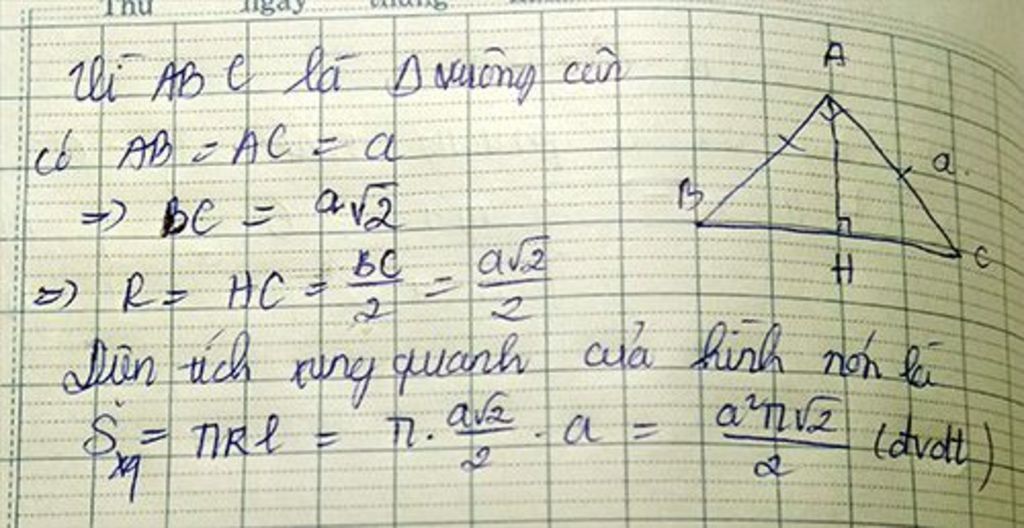 Thứ ngày tháng
Vì ABC là Δ vuông cân
có AB = AC = a
=> BC = a√2
=> R = HC = BC/2 = a√2/2
Diện tích xung quanh của hình nón là
Sxq = πRl = π . a√2/2 . a = a²π√2/2 (đvdt)
A
B
a
H
C